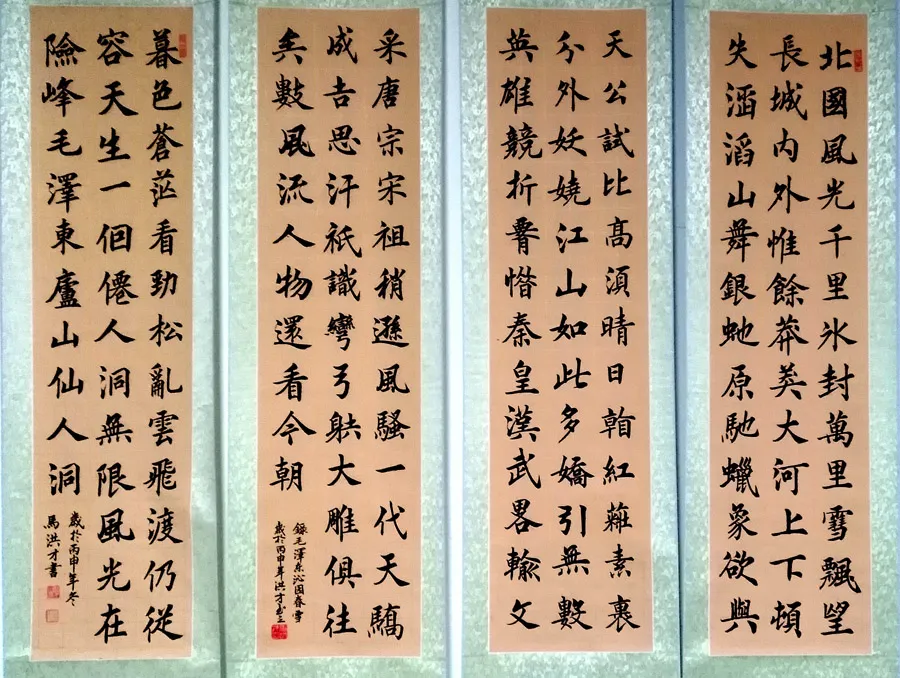 北國風光千里氷封萬里雪飄望
長城内外惟餘莽莽大河上下頓
失滔滔山舞銀虵原馳蠟象欲與
天公試比髙須晴日看紅裝素裹
分外妖嬈江山如此多嬌引無數
英雄競折腰惜秦皇漢武畧輸文
采唐宗宋祖稍遜風騷一代天驕
成吉思汗祇識彎弓射大雕俱往
矣數風流人物還看今朝
錄毛澤東沁園春雪
歲於丙申年洪才書
暮色蒼茫看勁松亂雲飛渡仍從
容天生一個僊人洞無限風光在
險峰毛澤東廬山仙人洞
歲於丙申年冬
馬洪才書